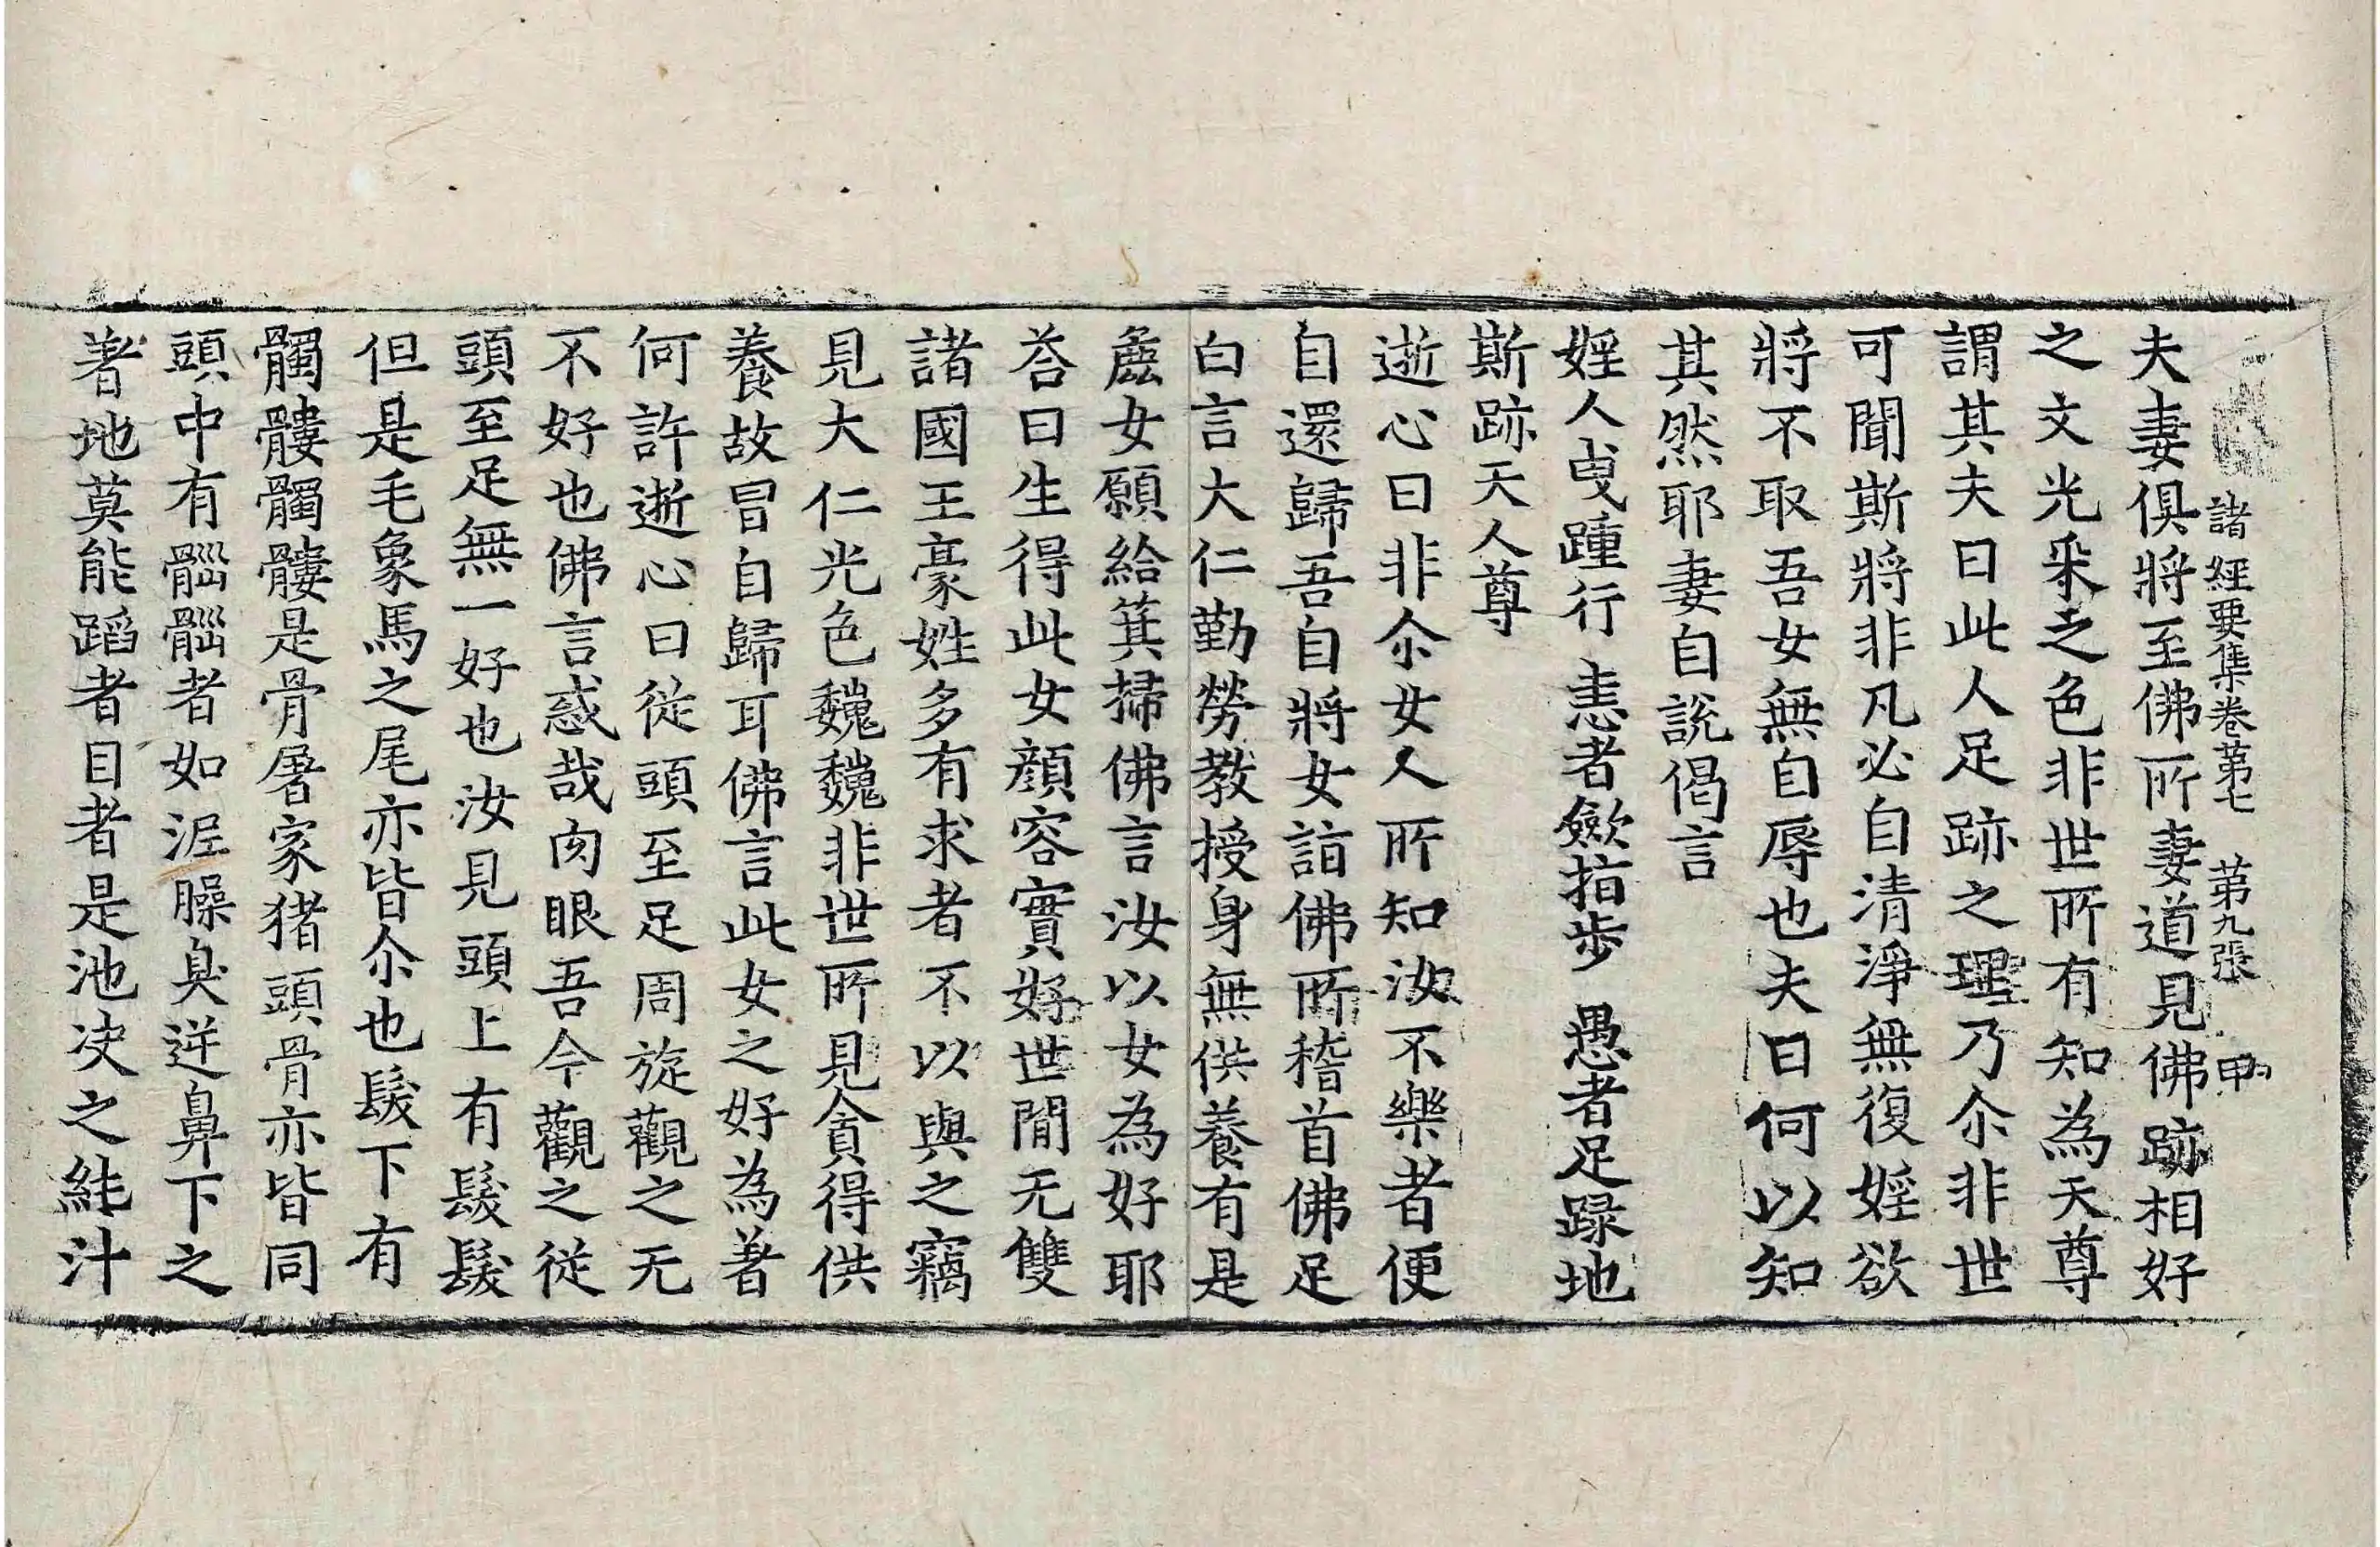 諸經要集卷苐七 苐九張 甲
夫妻俱將至佛所妻道見佛跡相好
之文光采之色非世所有知為天尊
謂其夫曰此人足跡之理乃尒非世
可聞斯將非凡必自清淨無復婬欲
將不取吾女無自辱也夫曰何以知
其然耶妻自說偈言
婬人曳踵行 恚者斂指步 愚者足踧地
斯跡天人尊
逝心曰非尒女人所知汝不樂者便
自還歸吾自將女詣佛所稽首佛足
白言大仁勤勞教授身無供養有是
麁女願給箕掃佛言汝以女為好耶
荅曰生得此女顏容實好世間无雙
諸國王豪姓多有求者不以與之竊
見大仁光色巍巍非世所見貪得供
養故冒自歸耳佛言此女之好為著
何許逝心曰從頭至足周旋觀之无
不好也佛言惑哉肉眼吾今觀之從
頭至足無一好也汝見頭上有髮髮
但是毛象馬之尾亦皆尒也髮下有
髑髏髑髏是骨屠家猪頭骨亦皆同
頭中有𦛁𦛁者如泥臊臭逆鼻下之
著地莫能蹈者目者是池决之純汁